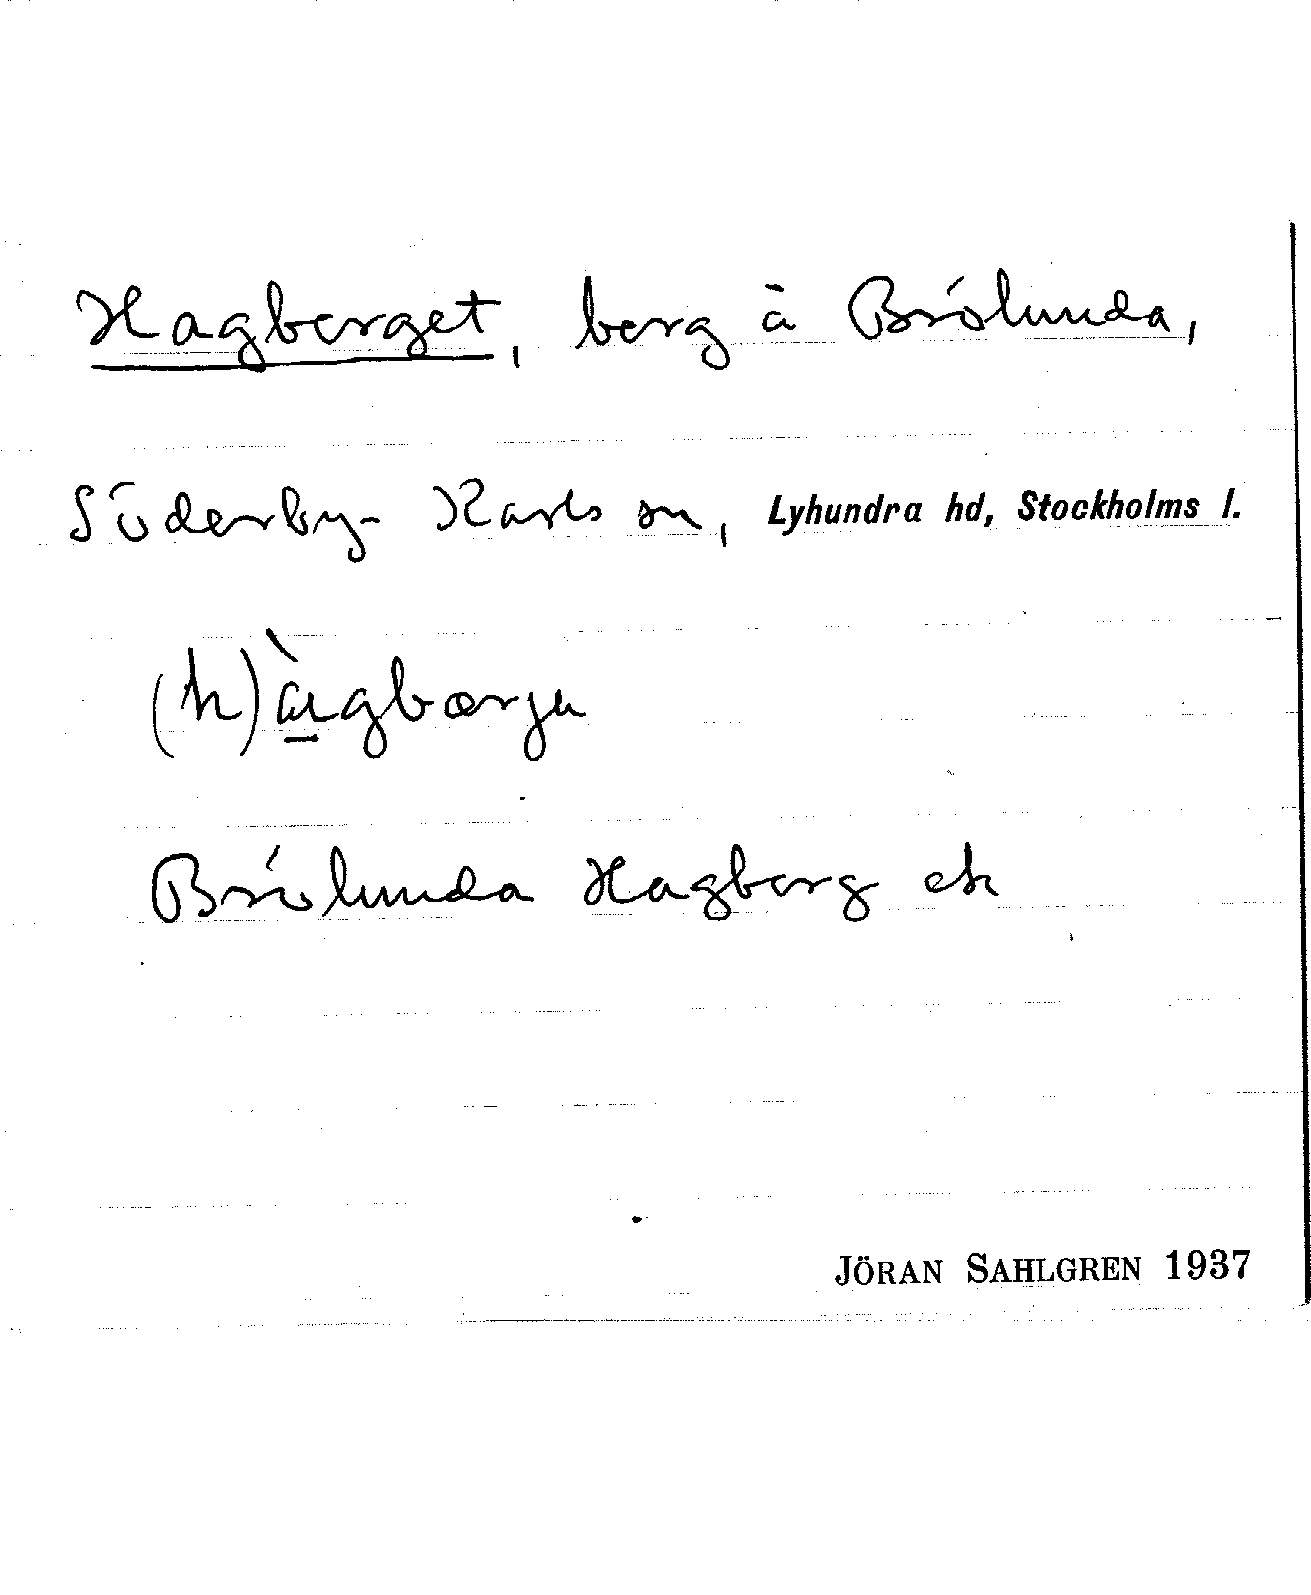 Hagberget, berg å Brölunda,
Söderby-Karls sn, Lyhundra hd, Stockholms l.
(h)àgbærjə
Brölunda Hagberg ek
JÖRAN SAHLGREN 1937